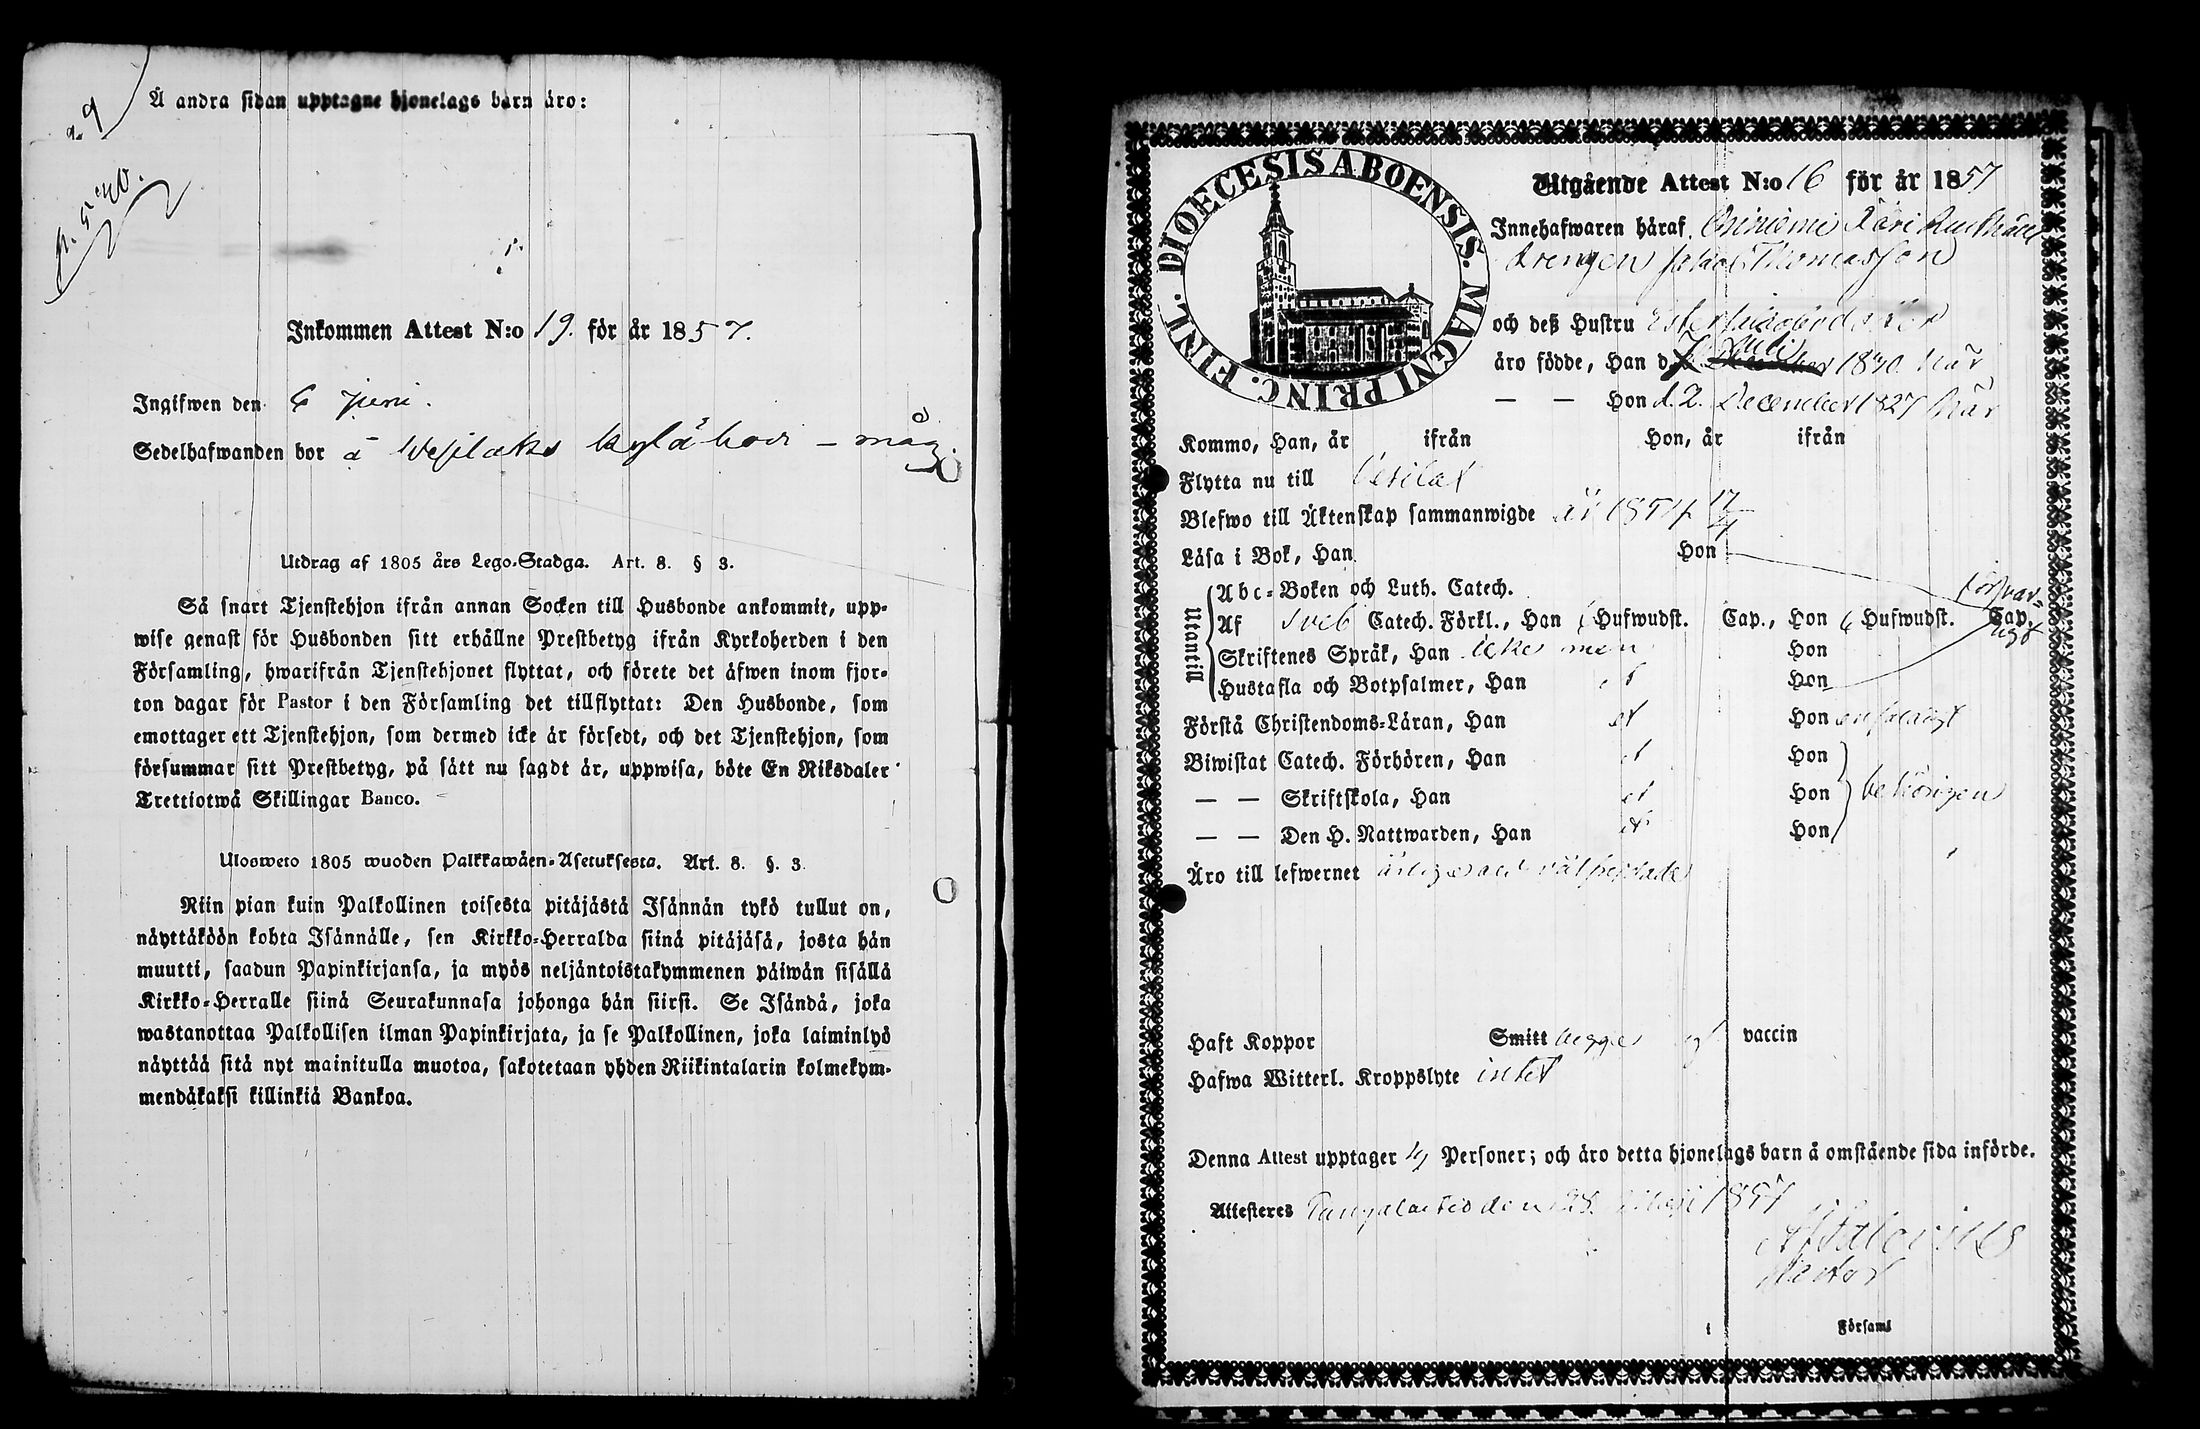 Å andra sidan upptagne hjonelags barn äro:
Inkommen Attest N:o 19. för år 1857.
Ingifwen den 6 Juni.
Sedelhafwanden bor å Wesilaks kylä howi - måg
Utdrag af 1805 års Lego-Stadga. Art. 8. § 3.
Så snart Tjenstehjon ifrån annan Socken till Husbonde ankommit, upp-
wise genast för Husbonden sitt erhållne Prestbetyg ifrån Kyrkoherden i den
Församling, hwarifrån Tjenstehjonet flyttat, och förete det äfwen inom fjor-
ton dagar för Pastor i den Församling det tillflyttat: Den Husbonde, som
emottager ett Tjenstehjon, som dermed icke är försedt, och det Tjenstehjon, som
försummar sitt Prestbetyg, på sätt nu sagdt är, uppwisa, böte En Riksdaler
Trettiotwå Skillingar Banco.
Ulosweto 1805 wuoden Palkkawäen-Asetuksesta. Art. 8. §. 3.
Niin pian kuin Palkollinen toisesta pitäjästä Isännän tykö tullut on,
näyttäköön kohta Isännälle, sen Kirkko-Herralda siinä pitäjäsä, josta hän
muutti, saadun Papinkirjansa, ja myös neljäntoistakymmenen päiwän sisällä
Kirkko-Herralle siinä Seurakunnasa johonga hän siirsi. Se Isändä, joka
wastanottaa Palkollisen ilman Papinkirjata, ja se Palkollinen, joka laiminlyö
näyttää sitä nyt mainitulla muotoa, sakotetaan yhden Riikintalarin kolmekym-
mendäkaksi killinkiä Bankoa.
DIOECESIS ABOENSIS. MAGNI PRINC. FINL.
Utgående Attest N:o 16 för år 1857
Innehafwaren häraf,
drengen Jakob Thomasson
och deß Hustru
äro födde, Han d. Juli 1830 här
— — Hon d. 2. December 1827 här
Kommo, Han, år ifrån Hon, år ifrån
Flytta nu till Vesilax
Blefwo till Äktenskap sammanwigde år 1854 17/4
Läsa i Bok, Han Hon försvar-
ligt
Utantill
Abc-Boken och Luth. Catech.
Af Sveb Catech. Förkl., Han 6 Hufwudst. Cap., Hon 6 Hufwudst. Cap.
Skriftenes Språk, Han Hon
Hustafla och Botpsalmer, Han Hon
Förstå Christendoms-Läran, Han Hon enfaldigt
Biwistat Catech. Förhören, Han Hon
— — Skriftskola, Han Hon behörigen
— — Den H. Nattwarden, Han Hon
Äro till lefwernet ärlige och välfrejdade
Haft Koppor Smitt begge vaccin
Hafwa Witterl. Kroppslyte intet
Denna Attest upptager 4 Personer; och äro detta hjonelags barn å omstående sida införde.
Attesteres Kangalartis den 28. Maji 1857
Pastor
i Församl